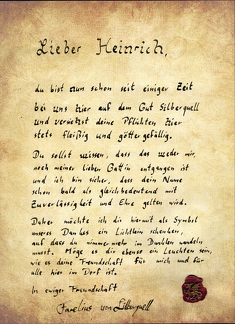 Lieber Heinrich,
du bist nun schon seit einiger Zeit
bei uns hier auf dem Gut Silberquell
und verrichtest deine Pflichten hier
stets fleißig und göttergefällig.
Du sollst wissen, dass das weder mir,
noch meiner lieben Gattin entgangen ist
und ich bin sicher, dass dein Name
schon bald als gleichbedeutend mit
Zuverlässigkeit und Ehre gelten wird.
Daher möchte ich dir hiermit als Symbol
unseres Dankes ein Lichtlein schenken,
auf dass du nimmermehr im Dunklen wandeln
musst. Möge es dir ebenso ein Leuchten sein,
wie es deine Freundschaft für mich und für
alle hier im Dorf ist.
In ewiger Freundschaft
von Silberquell